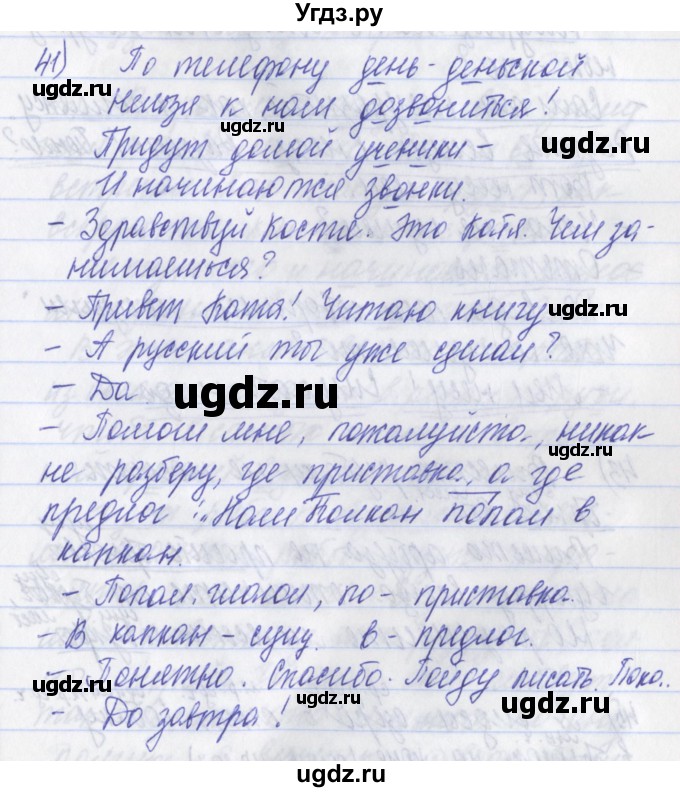 Угдз.ру
41) По телефону день-деньской
Нельзя к нам дозвониться!
Придут домой ученики -
И начинаются звонки.
- Здравствуй Костя. Это Катя. Чем за-
нимаешься?
- Привет Катя! Читаю книгу
- А русский ты уже сделал?
- Да
- Помоги мне, пожалуйста, никак
не разберу, где приставка, а где
предлог: "Наш Полкан попал в
капкан.
- Попал. глагол, по- приставка.
- В капкан - сущ. в - предлог.
- Понятно. Спасибо. Пойду писать. Пока..
- До завтра!
ugdz.ru
ugdz.ru
ugdz.ru
ugdz.ru
ugdz.ru
ugdz.ru
ugdz.ru
ugdz.ru
ugdz.ru
ugdz.ru
ugdz.ru
ugdz.ru